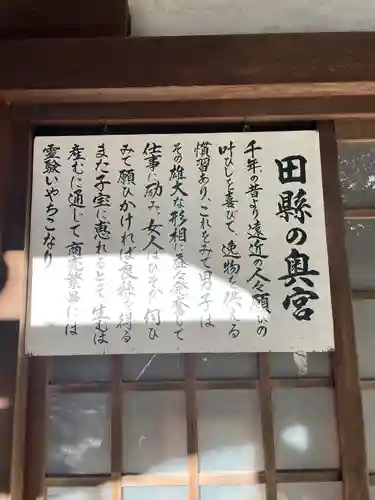 田縣の奥宮
千年の昔より遠近の人々願ひの
叶ひしを喜びて、逸物を供える
慣習あり、これをみて男子は
その雄大な形相に益々発奮して
仕事に励み、女人はひそかに伺ひ
みて願ひかければ良縁を得る
また子宝に恵れるとて生むは
産むに通じて商売繁昌には
霊験いやちこなり